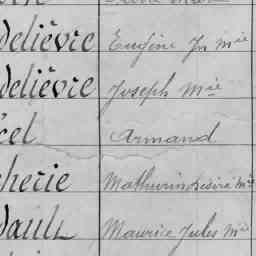 delièvre Eugène Jn Mie
delièvre Joseph Mie
cel Armand
cherie Mathurin Désiré Mie
dault Maurice Jules Mie